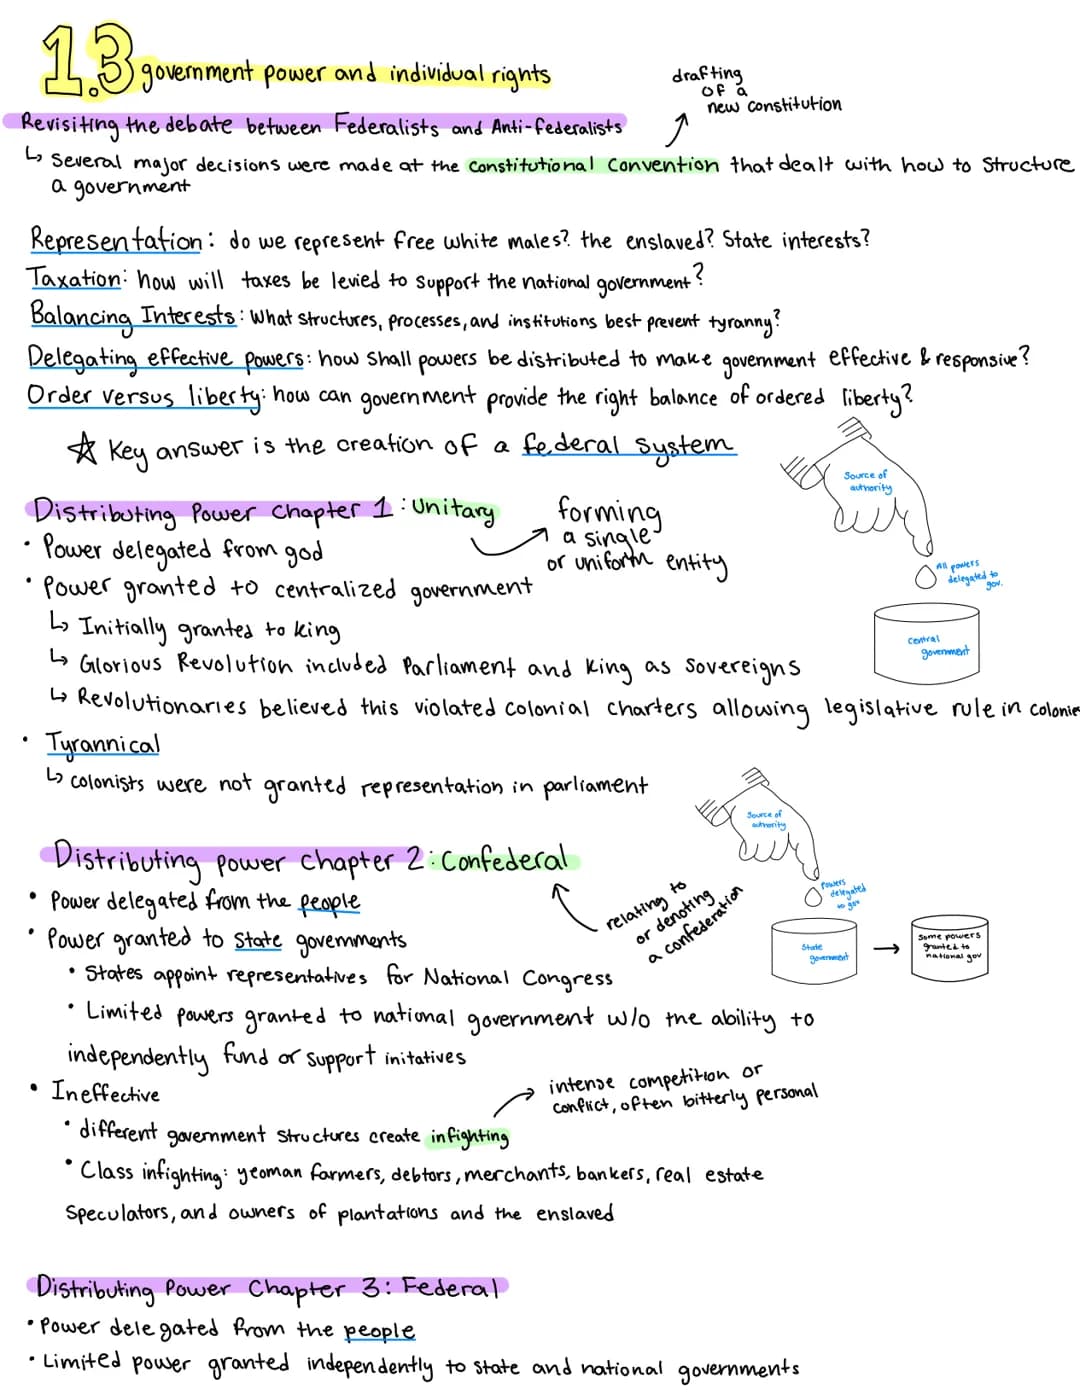 1.3 government power and individual rights
drafting
of a
new constitution
Revisiting the debate between Federalists and Anti-federalists
↳ Several major decisions were made at the Constitutional Convention that dealt with how to structure
a government
Representation: do we represent free white males? the enslaved? State interests?
Taxation: how will taxes be levied to support the national government?
Balancing Interests: What structures, processes, and institutions best prevent tyranny?
Delegating effective powers: how shall powers be distributed to make government effective & responsive?
Order versus liberty: how can government provide the right balance of ordered liberty?
☆ Key answer is the creation of a federal system
Source of
authority
All powers
delegated to
gov.
Central
government
Distributing Power Chapter 1: Unitary
forming
a single
or uniform entity
• Power delegated from god
• Power granted to centralized government
↳ Initially granted to king
↳ Glorious Revolution included Parliament and King as Sovereigns
↳ Revolutionaries believed this violated colonial charters allowing legislative rule in colonies
• Tyrannical
↳ colonists were not granted representation in parliament
Source of
authority
Powers
delegated
to gov
State
government
→
Some powers
granted to
national gov
Distributing power chapter 2: Confederal
relating to
or denoting
a confederation
• Power delegated from the people
• Power granted to State governments
• States appoint representatives for National Congress
• Limited powers granted to national government w/o the ability to
independently fund or support initatives
• Ineffective
intense competition or
conflict, often bitterly personal
• different government structures create infighting
• Class infighting: yeoman farmers, debtors, merchants, bankers, real estate
Speculators, and owners of plantations and the enslaved
Distributing Power Chapter 3: Federal
• Power delegated from the people
• Limited power granted independently to state and national governments